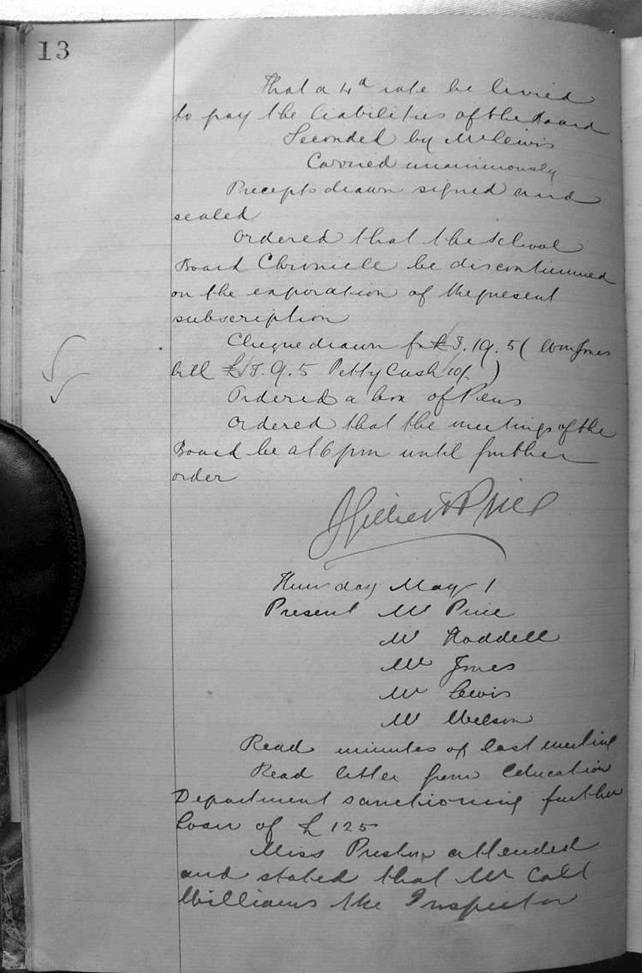 13
that a 4d rate be levied
to pay the liabilities of the Board
Seconded by Mr Lewis
Carried unanimously
Precepts drawn signed and
sealed
Ordered that the School
Board Chronicle be discontinued
on the expiration of the present
subscription
Cheque drawn for £3.19.5 ( Wm Jones
bill £3.9.5 Petty Cash 10/ )
Ordered a box of Pens
Ordered that the meetings of the
Board be at 6 pm until further
order
Price
Thursday May 1
Present Mr Price
Mr Haddell
Mr Jones
Mr Lewis
Mr Wilson
Read minutes of last meeting
Read letter from Education
Department sanctioning further
Loan of £125
Miss Preston attended
and stated that Mr
Williams the Inspector